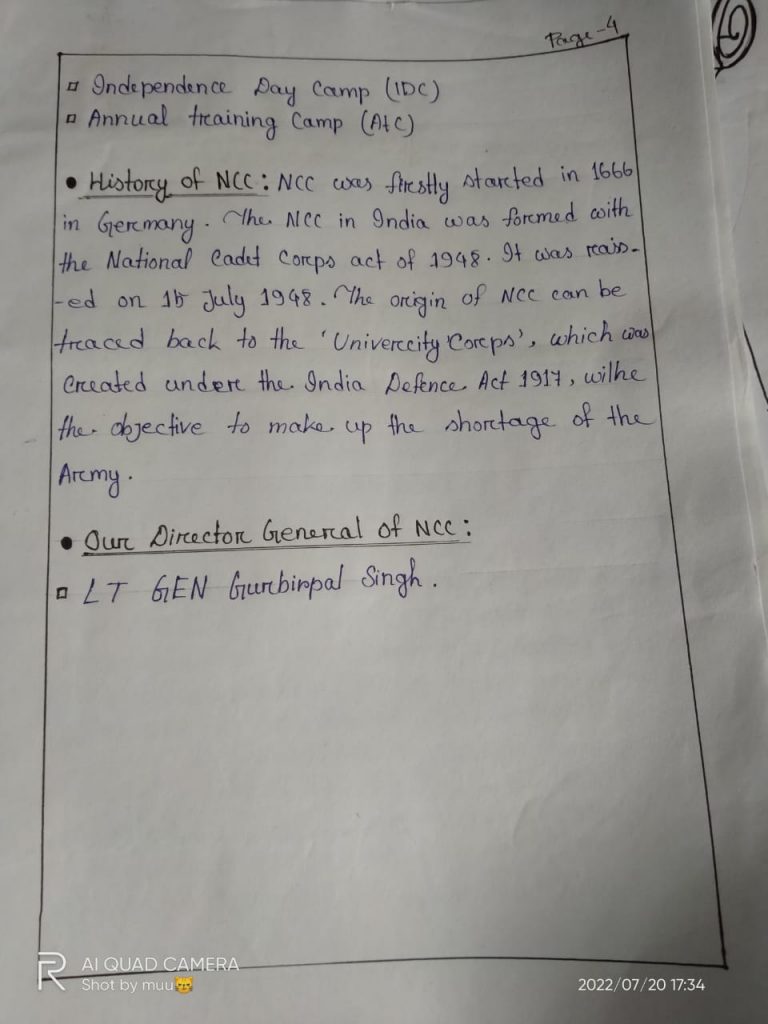 Page-4
▫ Independence Day Camp (IDC)
▫ Annual training Camp (AtC)
• History of NCC: NCC was firstly started in 1666
in Germany. The NCC in India was formed with
the National Cadet Corps act of 1948. It was rais-
-ed on 15 July 1948. The origin of NCC can be
traced back to the 'Univercity Corps', which was
Created under the India Defence Act 1917, withe
the objective to make up the shortage of the
Army.
• Our Director General of NCC:
▫ LT GEN Gurbirpal Singh.
R AI QUAD CAMERA
Shot by muu😿
2022/07/20 17:34